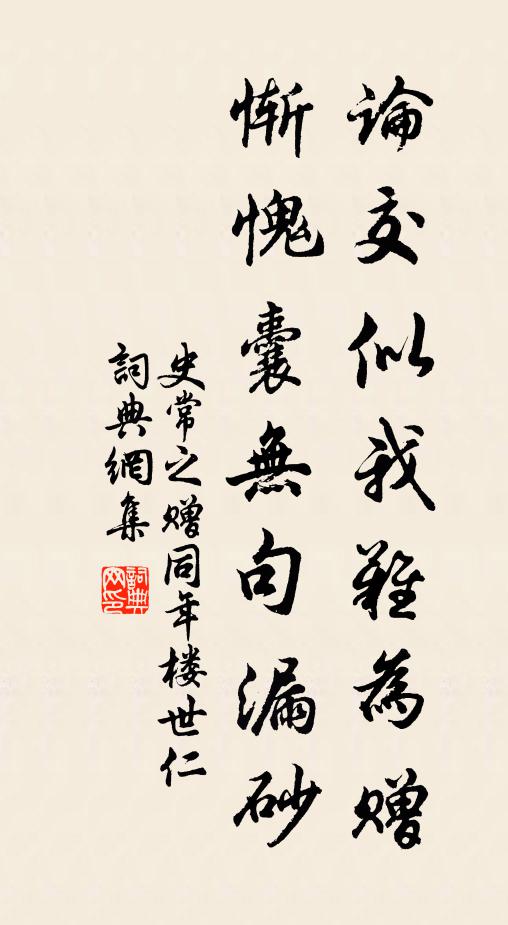 論交似我難為贈
慚愧囊無句漏砂
史常之贈同年楼世仁
詞典網集
詞典
网印